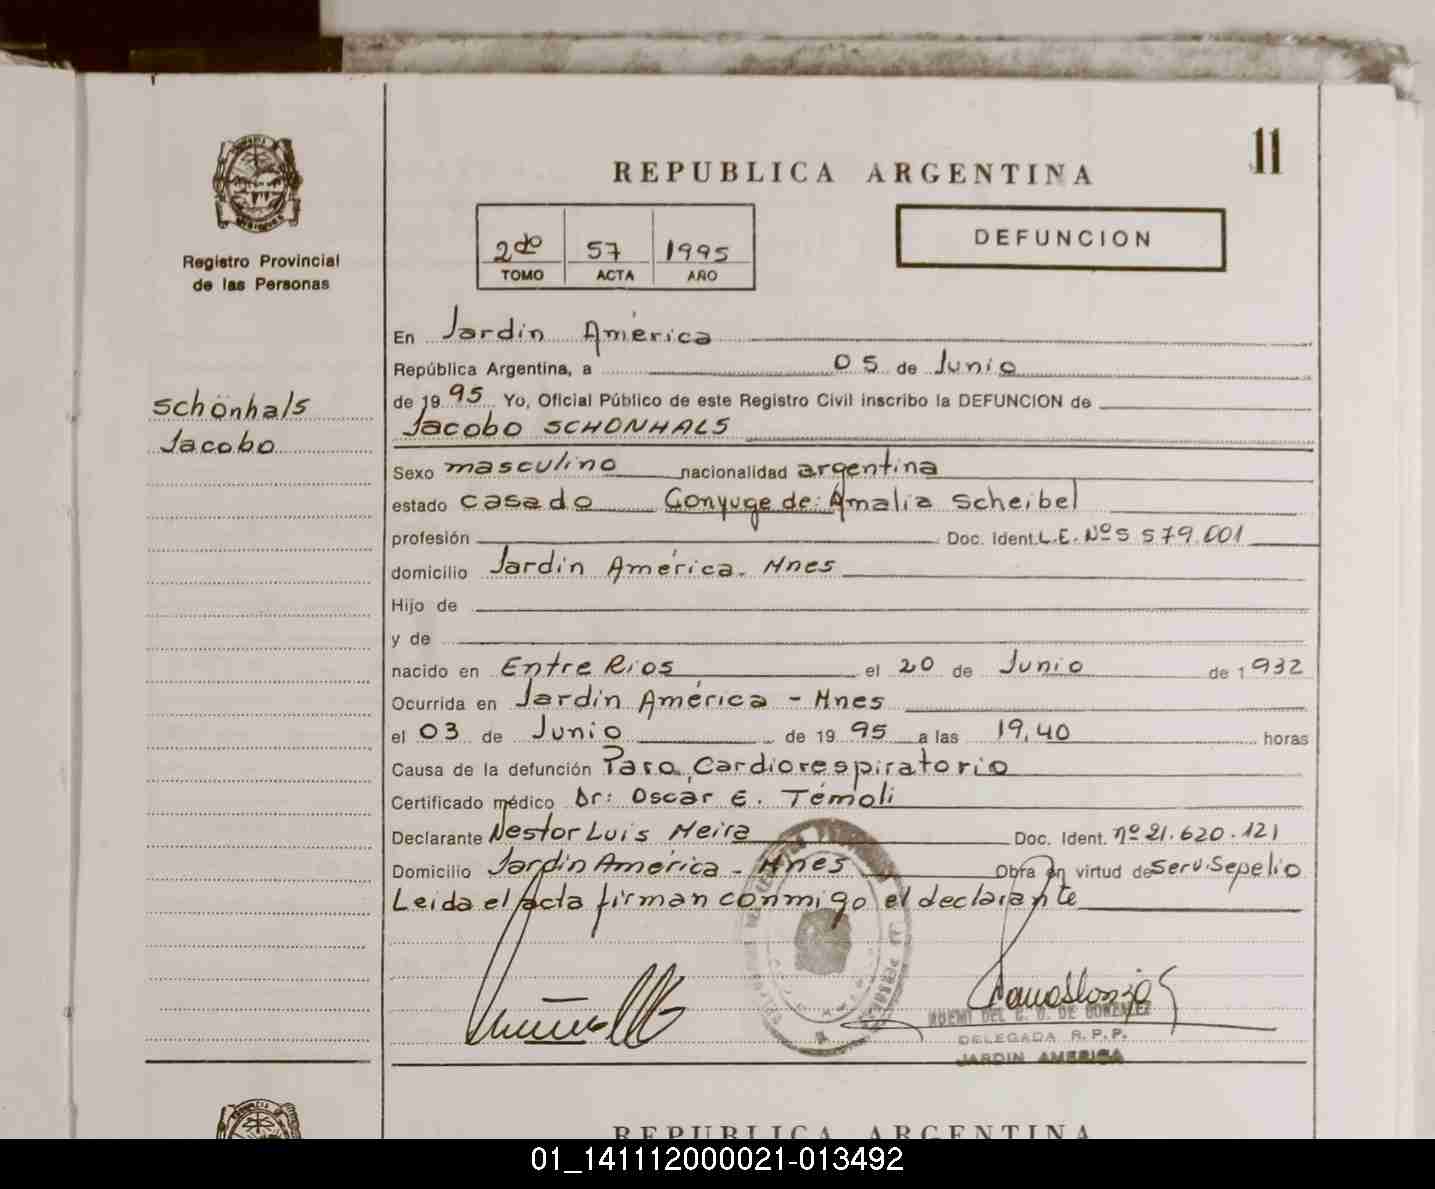 11
REPUBLICA ARGENTINA
Registro Provincial
de las Personas
2do 57 1995
TOMO ACTA AÑO
DEFUNCION
Schönhals
Jacobo
En Jardín América
República Argentina, a 05 de Junio
de 1995 Yo, Oficial Público de este Registro Civil inscribo la DEFUNCION de
Jacobo SCHONHALS
Sexo masculino nacionalidad argentina
estado casado Conyuge de: Amalia Scheibel
profesión Doc. Ident. L.E. Nº 5 579.001
domicilio Jardín América. Mnes
Hijo de
y de
nacido en Entre Rios el 20 de Junio de 1932
Ocurrida en Jardín América - Mnes
el 03 de Junio de 1995 a las 19,40 horas
Causa de la defunción Paro Cardiorespiratorio
Certificado médico Dr: Oscar E. Témoli
Declarante Nestor Luis Meira Doc. Ident. nº 21.620.121
Domicilio Jardín América - Mnes Obra en virtud de Serv. Sepelio
Leida el acta firman conmigo el declarante
DE GONZALEZ
DELEGADA R.P.P.
JARDIN AMERICA
REPUBLICA ARGENTINA
01_141112000021-013492